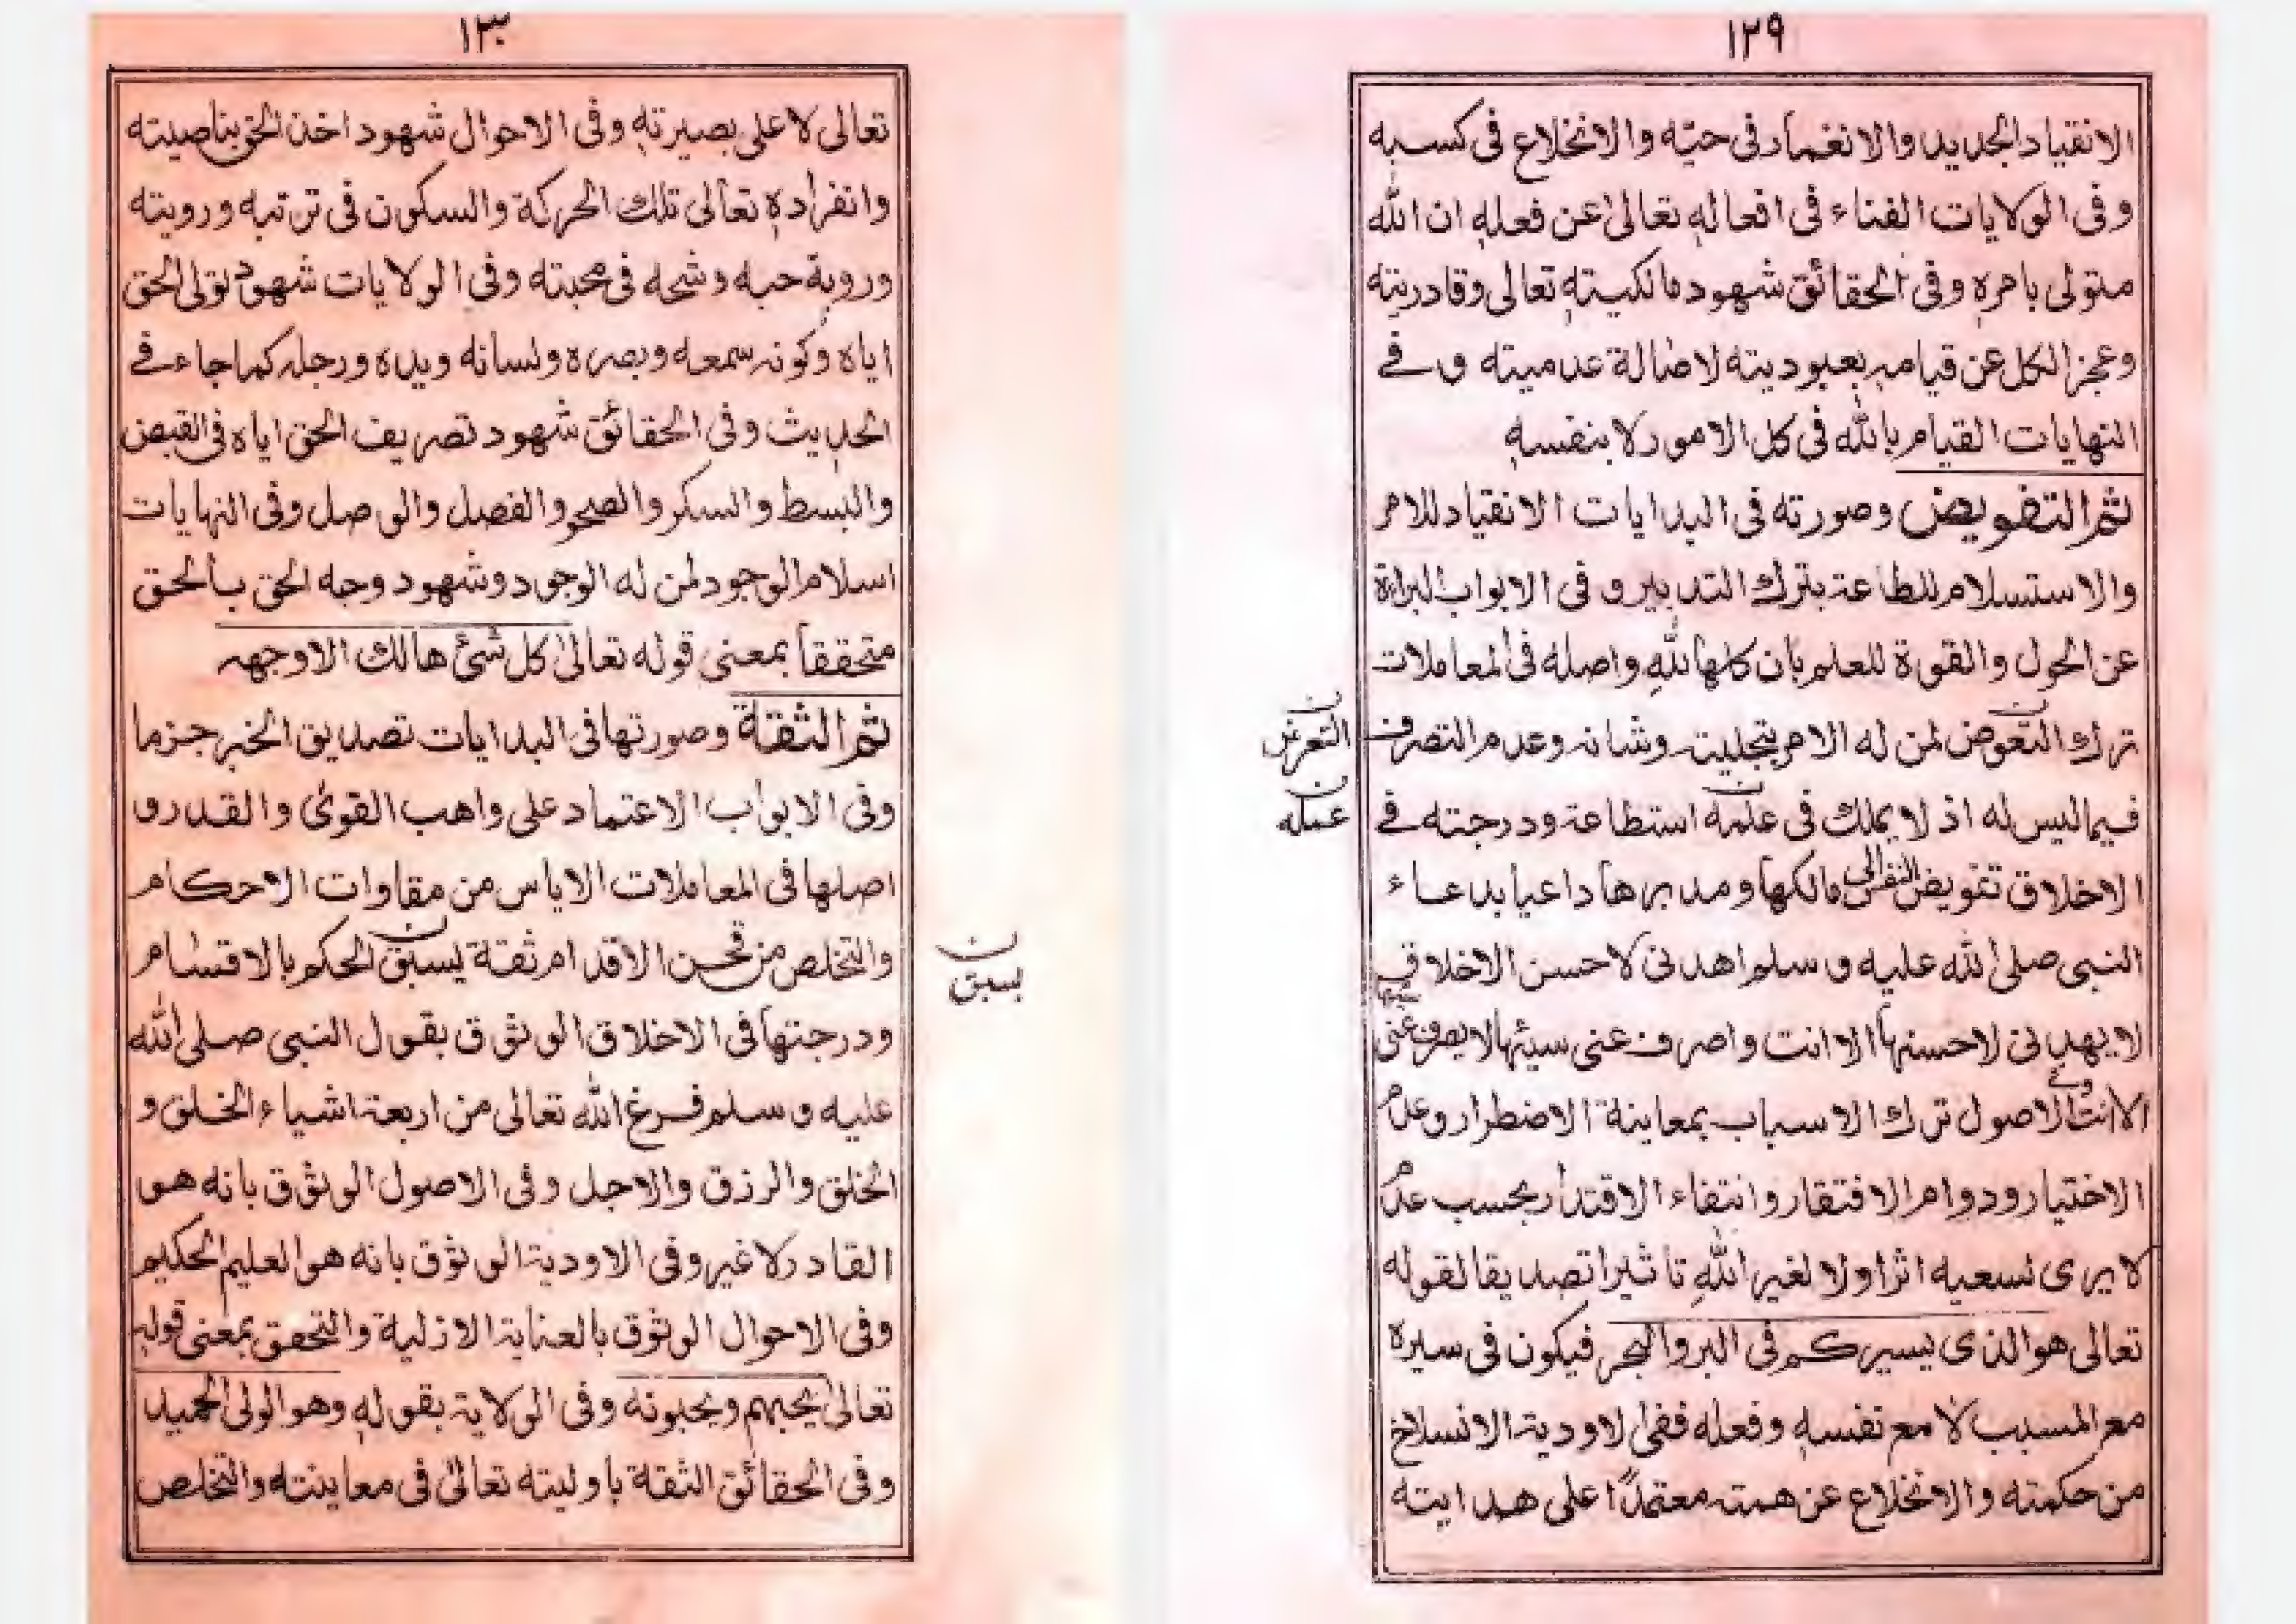 ١٢٩
الانقياد الجديد والانغماد في حبّه والانخلاع في كسبه
وفي الولايات الفناء في افعاله تعالى عن فعله ان الله
متولى بامره وفي الحقائق شهود مالكيته تعالى وقادريته
وعجز الكل عن قيامه بعبوديته لاضالة عدميته و في
النهايات القيام بالله في كل الامور لا بنفسه
ثم التفويض وصورته في البدايات الانقياد للامر
والاستسلام للطاعة بترك التدبير و في الابواب البراءة
عن الحول والقوة للعلم بان كلها لله واصله في المعاملات
ترك التعوض لمن له الامر بتجليته وشانه وعدم التصرف
التعرض
فيما ليس له اذ لا يملك في علمه استطاعة ودرجته في
عمله
الاخلاق تفويض النفس الى مالكها ومدبرها داعيا بدعاء
النبى صلى الله عليه و سلم اهدنى لاحسن الاخلاق
لا يهدنى لاحسنها الا انت واصرف عنى سيئها لا يصرف عنى سيئها
الا انت وفي الاصول ترك الاسباب بمعاينة الاضطرار وعدم
الاختيار ودوام الافتقار وانتفاء الاقتدار بحسب عدم
لا يرى لسعيه اثرا ولا لغير الله تاثيرا تصديقا لقوله
تعالى هو الذى يسيركم في البر والبحر فيكون في سيره
مع المسبب لا مع نفسه وفعله ففى الاودية الانسلاخ
من حكمته والانخلاع عن همته معتمدًا على هدايته
١٣٠
تعالى لا على بصيرته وفي الاحوال شهود اخذ الحق بناصيته
وانفراده تعالى تلك الحركة والسكون في ترتبه ورويته
وروية حبه وشحه في محبته وفي الولايات شهود تولى الحق
اياه وكونه سمعه وبصره ولسانه ويده ورجله كما جاء في
الحديث وفي الحقائق شهود تصريف الحق اياه في القبض
والبسط والسكر والصحو والفصل والوصل وفي النهايات
اسلام الوجود لمن له الوجود وشهود وجه الحق بالحق
متحققا بمعنى قوله تعالى كل شئ هالك الا وجهه
ثم الثقة وصورتها في البدايات تصديق الخبر جزما
وفي الابواب الاعتماد على واهب القوى والقدر و
اصلها في المعاملات الاياس من مقاوات الاحكام
والتخلص من قحن الاقدام ثقة يسبق الحكم بالاقسام
بسبق
ودرجتها في الاخلاق الوثوق بقول النبى صلى الله
عليه و سلم فرغ الله تعالى من اربعة اشياء الخلق و
الخلق والرزق والاجل وفي الاصول الوثوق بانه هو
القادر لا غير وفي الاودية الوثوق بانه هو العليم الحكيم
وفي الاحوال الوثوق بالعناية الازلية والتحقق بمعنى قوله
تعالى يحبهم ويحبونه وفي الولاية بقوله وهو الولى الحميد
وفي الحقائق الثقة باوليته تعالى في معاينته والتخلص